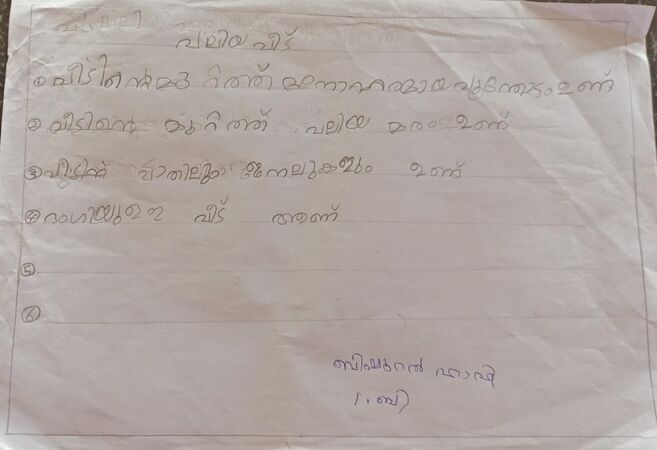 വലിയ വീട്
① വീടിന്റെ മുറിത്ത് മനോഹരമായ പൂന്തോട്ടം ഉണ്ട്
② വീടിന്റെ മുറിത്ത് വലിയ മരം ഉണ്ട്
③ വീടിന് വാതിലും ജനലുകളും ഉണ്ട്
④ ഭംഗിയുള്ള വീട് ആണ്
⑤
⑥
1.ബി)